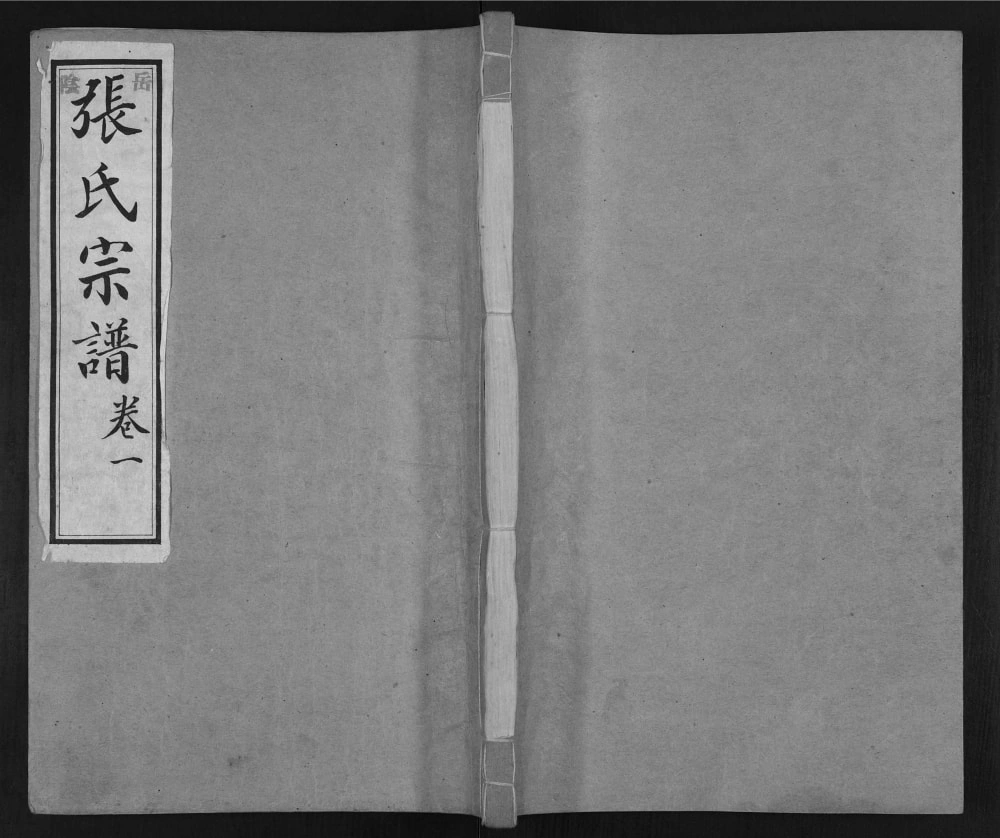 岳陰
張氏宗譜
卷一